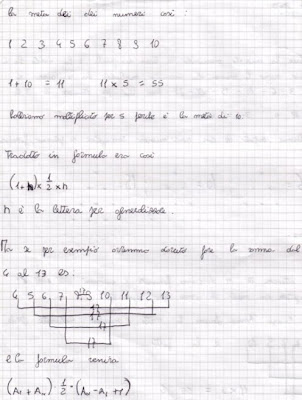 la metà dei dei numeri così :
1 2 3 4 5 6 7 8 9 10
1+10 = 11 11 x 5 = 55
moltiplicato per 5 perché è la metà di 10
Tradotto in formula era così
(1+n) x 1/2 x n
n è la lettera per generalizzare.
Ma se per esempio dovuto fare la somma dal
4 al 13 es:
4 5 6 7 8 9 10 11 12 13
17
17
17
17
17
e la formula veniva
(A1 + An) · 1/2 · (An - A1 + 1)